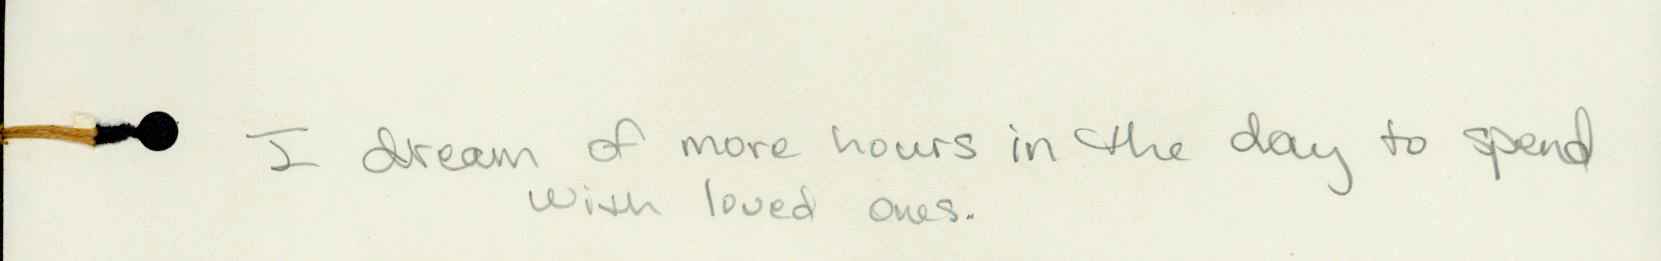 I dream of more hours in the day to spend
with loved ones.